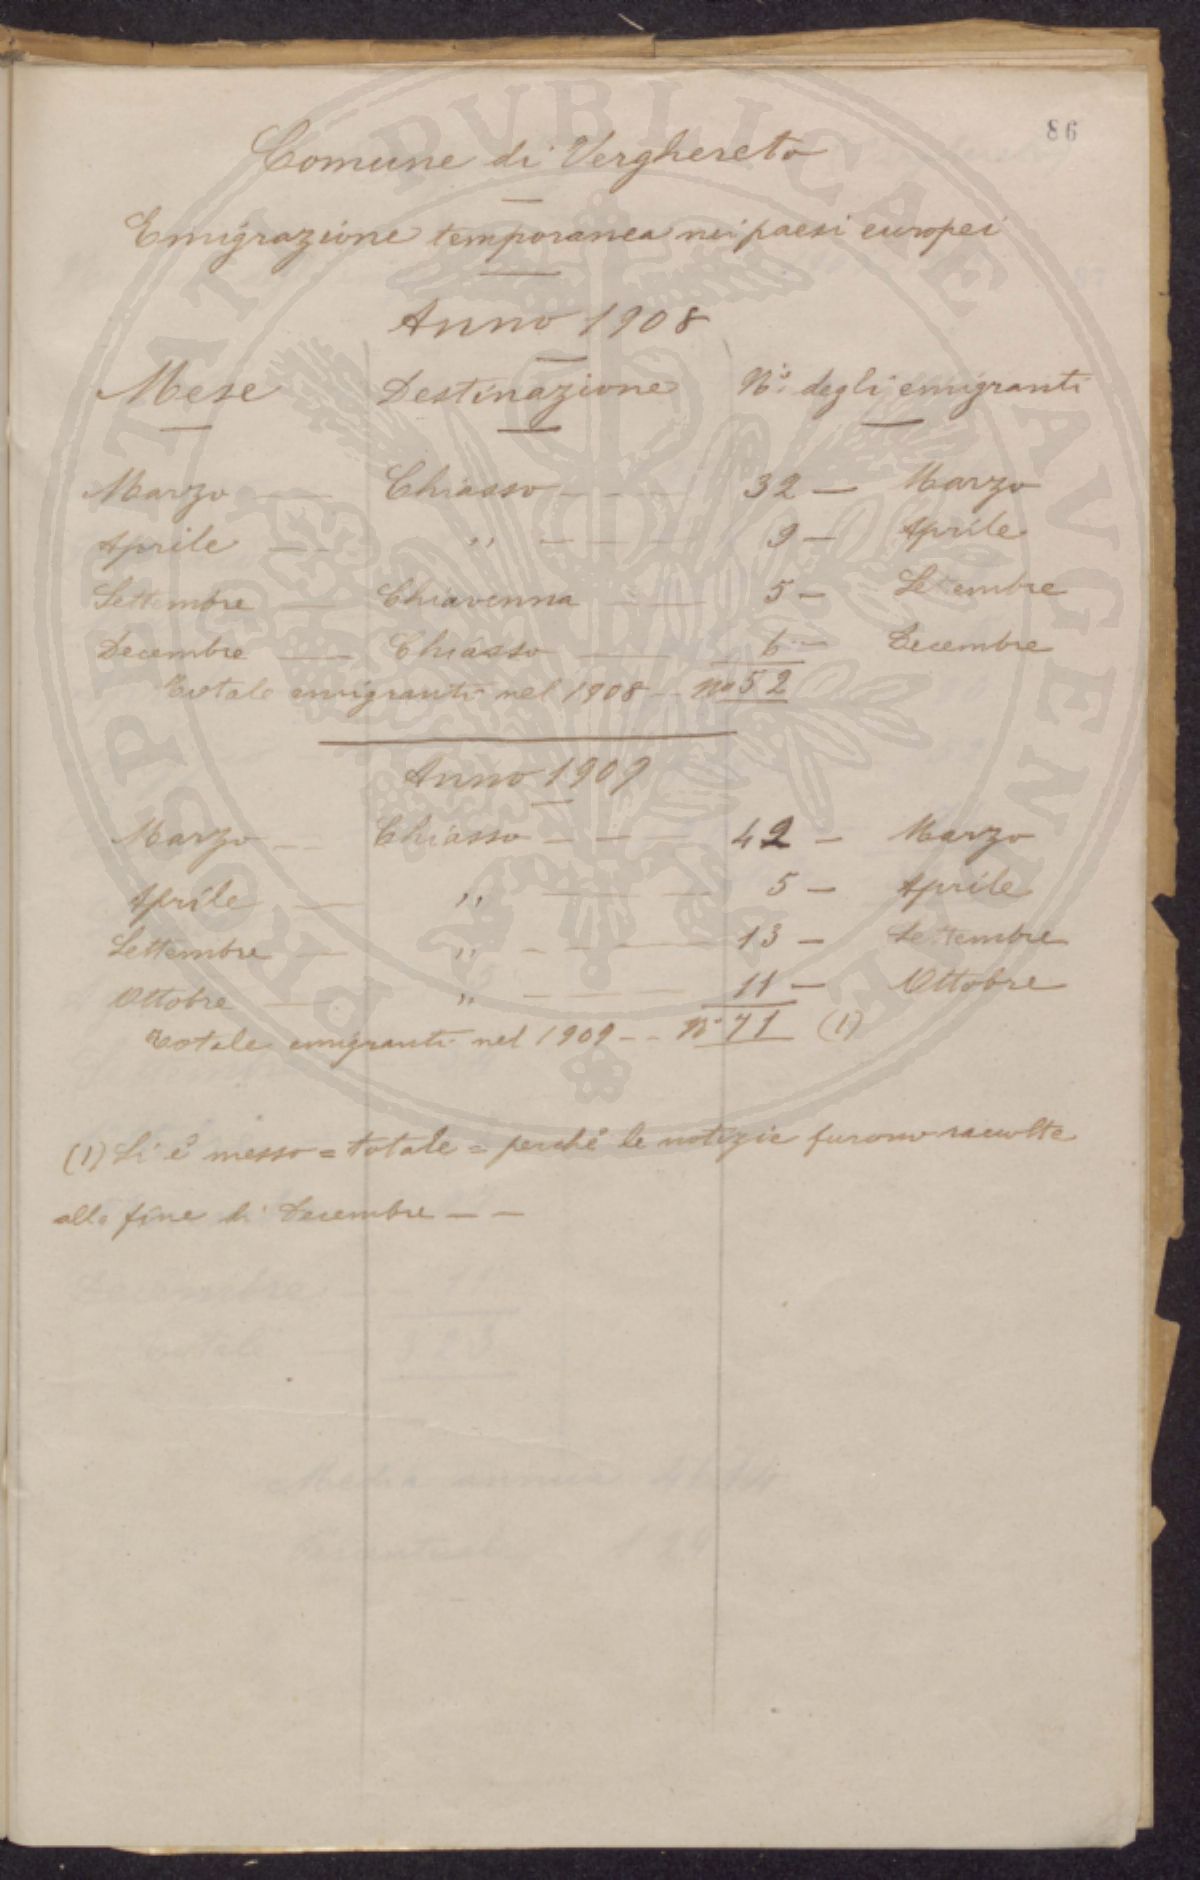 86
Comune di Verghereto
Emigrazione temporanea nei paesi europei
Anno 1908
Mese Destinazione No. degli emigranti
Marzo — Chiasso — — — 32 — Marzo
Aprile — — „ — — — 9 — Aprile
Settembre — Chiavenna — — 5 — Settembre
Decembre — Chiasso — — 6 — Decembre
Totale emigranti nel 1908 — No 52
Anno 1909
Marzo — Chiasso — — — 42 — Marzo
Aprile — „ — — 5 — Aprile
Settembre — „ — — — 13 — Settembre
Ottobre — „ — — — 11 — Ottobre
Totale emigranti nel 1909 -- No 71 (1)
(1) Si è messo = totale = perchè le notizie furono raccolte
alla fine di Decembre — —
PROSPERITATI PVBLICAE AVGENDAE